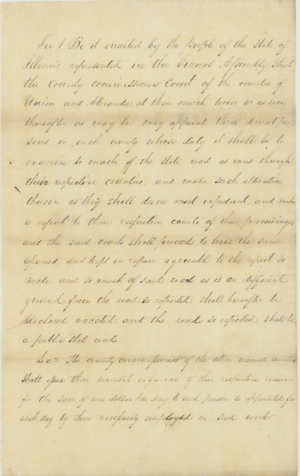 Sec 1 Be it enacted by the People of the State of
Illinois represented in the General Assembly That
the County Commissioners Court of the counties of
Union and Alexander at their march term or as soon
thereafter as may be may appoint three
sons in each county whose duty it shall be to
examine so much of the State road as runs through
their respective counties, and make such alteration
thereon as they shall deem most expedient and make
a report to their respective courts of their proceedings,
and the said courts shall proceed to have the same
opened and kept in repair agreeable to the report so
made and so much of said road as is on different
ground from the road so reported shall hereafter be
declared vacated and the road so reported shall be
a public State road.
Sec The county commissioners of the above named counties
shall issue their warrant on their respective
for the sum of one dollar per day to each person so appointed for
each day by them necessarily employed on said work